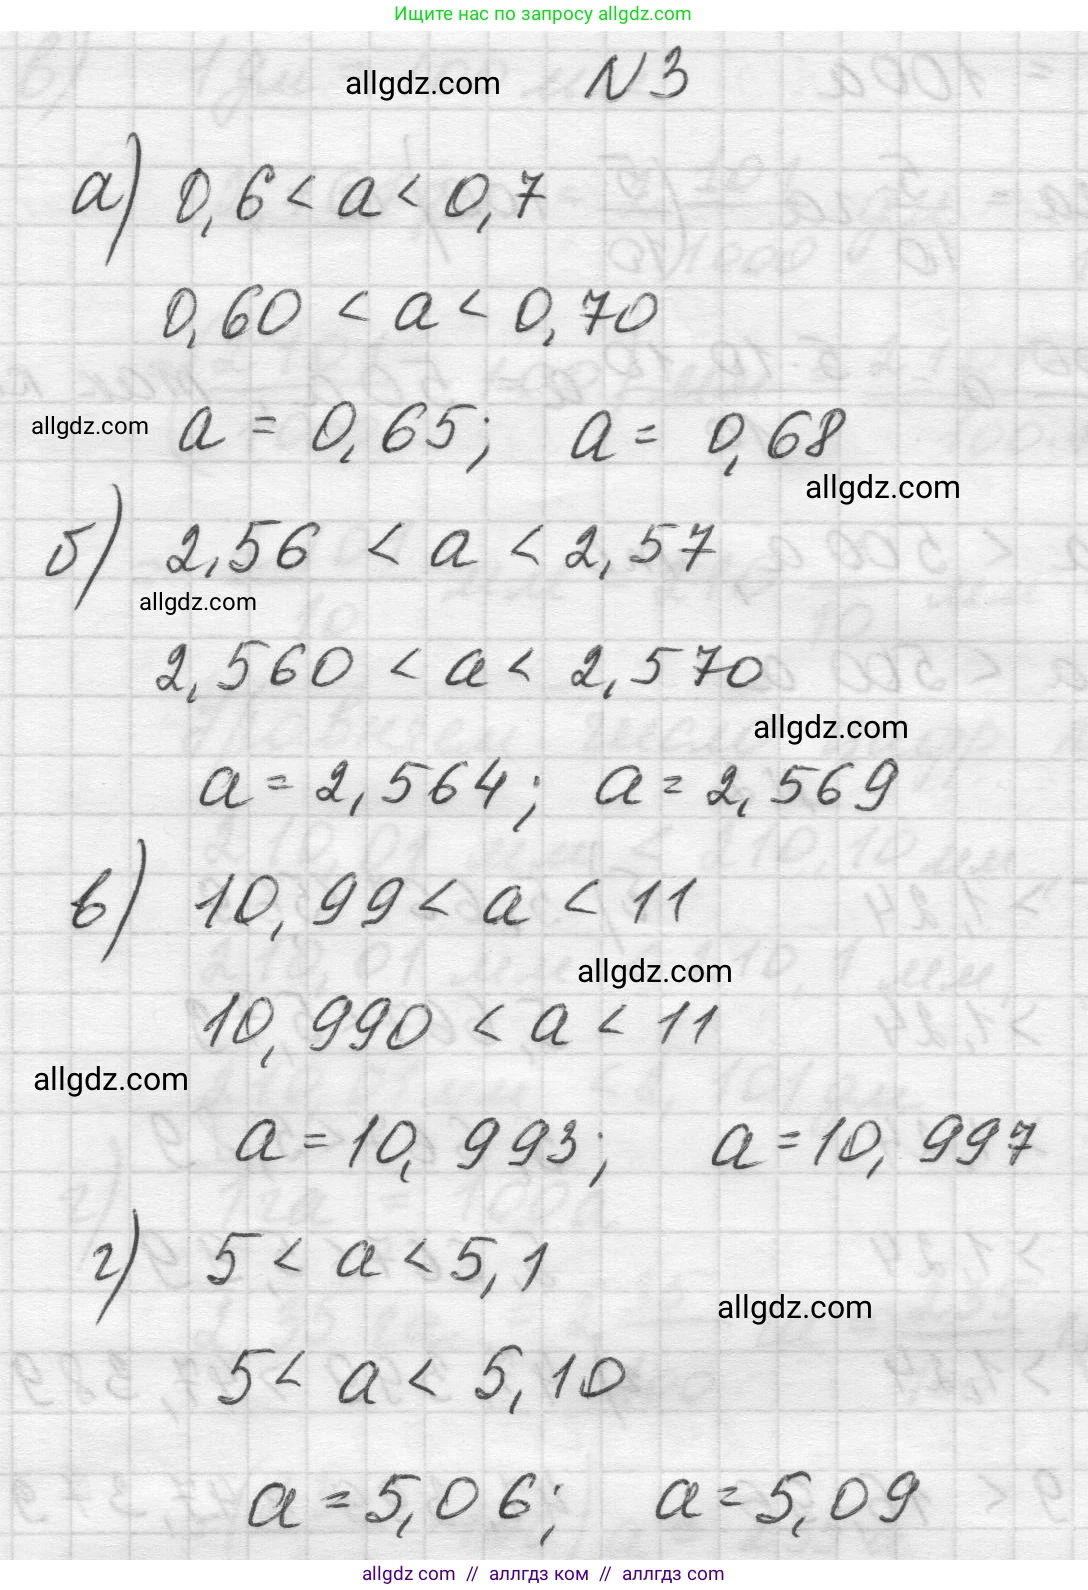 Ищите нас по запросу allgdz.com
allgdz.com N3
а) 0,6 < a < 0,7
0,60 < a < 0,70
allgdz.com a = 0,65; a = 0,68
allgdz.com
б) 2,56 < a < 2,57
allgdz.com
2,560 < a < 2,570
allgdz.com
a = 2,564; a = 2,569
в) 10,99 < a < 11
allgdz.com
10,990 < a < 11
allgdz.com
a = 10,993; a = 10,997
г) 5 < a < 5,1
allgdz.com
5 < a < 5,10
a = 5,06; a = 5,09
allgdz.com // аллгдз ком // аллгдз com